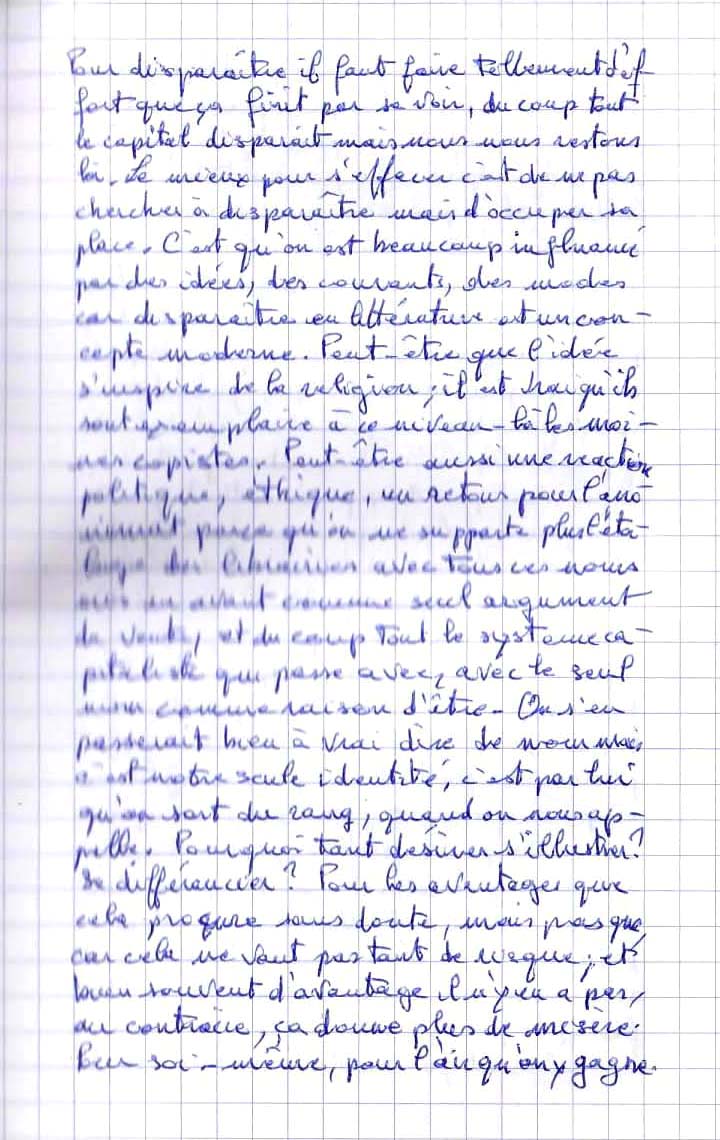 Pour disparaître il faut faire tellement d'ef-
fort que ça finit par se voir, du coup tout
le capital disparaît mais nous nous restons
là. Le mieux pour s'effacer c'est de ne pas
chercher à disparaître mais d'occuper sa
place. C'est qu'on est beaucoup influencé
par des idées, des courants, des modes
car disparaître en littérature est un con-
cepte moderne. Peut-être que l'idée
s'inspire de la religion ; il est vrai qu'ils
sont exemplaire à ce niveau-là les moi-
nes copistes. Peut-être aussi une réaction
politique, éthique, un retour pour l'ano
nimat parce qu'on ne supporte plus l'éta-
lage des librairies avec tous ces noms
mis en avant comme seul argument
de vente, et du coup tout le système ca-
pitaliste qui passe avec, avec le seul
nom comme raison d'être. On s'en
passerait bien à vrai dire de nom mais
c'est notre seule identité, c'est par lui
qu'on sort du rang, quand on nous ap-
pelle. Pourquoi tant désirer s'illustrer ?
Se différencier ? Pour les avantages que
cela procure sans doute, mais pas que,
car cela ne vaut pas tant de risque ; et
bien souvent d'avantage il n'y en a pas,
au contraire, ça donne plus de misère.
Pour soi-même, pour l'air qu'on y gagne.